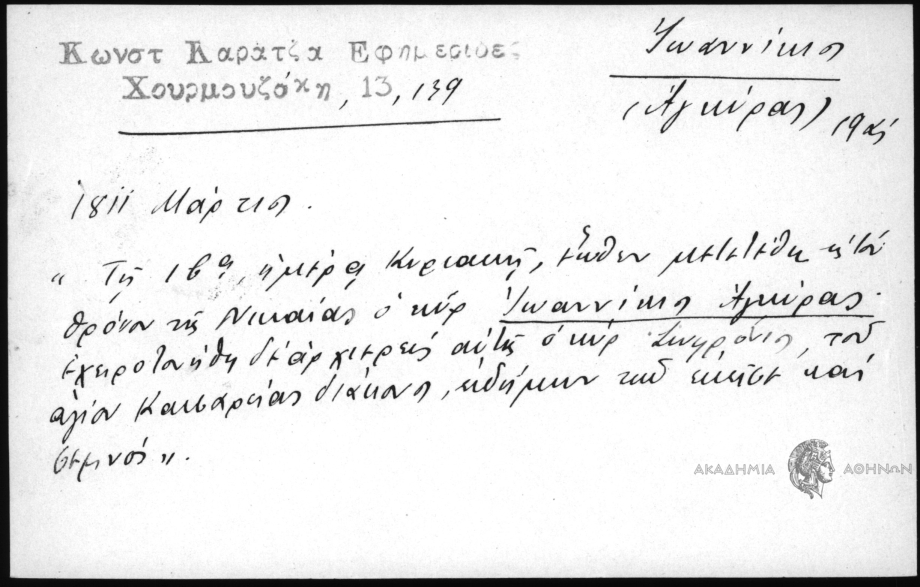 Κωνστ Καρατζα Εφημεριδες
Χουρμουζάκη, 13, 139
Ἰωαννίκιος
(Ἀγκύρας) 19ος
1811 Μάρτιος.
" Τῇ 16ῃ ἡμέρᾳ Κυριακῇ, ἕωθεν μετετέθη εἰς τὸν
θρόνον τῆς Νικαίας ὁ κὺρ Ἰωαννίκιος Ἀγκύρας.
ἐχειροτονήθη δὲ ἀρχιερεὺς αὐτῆς ὁ κὺρ Σωφρόνιος, τοῦ
ἁγίου Καισαρείας διάκονος, εἰδήμων τοῦ καὶ
σεμνός".
ΑΚΑΔΗΜΙΑ ΑΘΗΝΩΝ